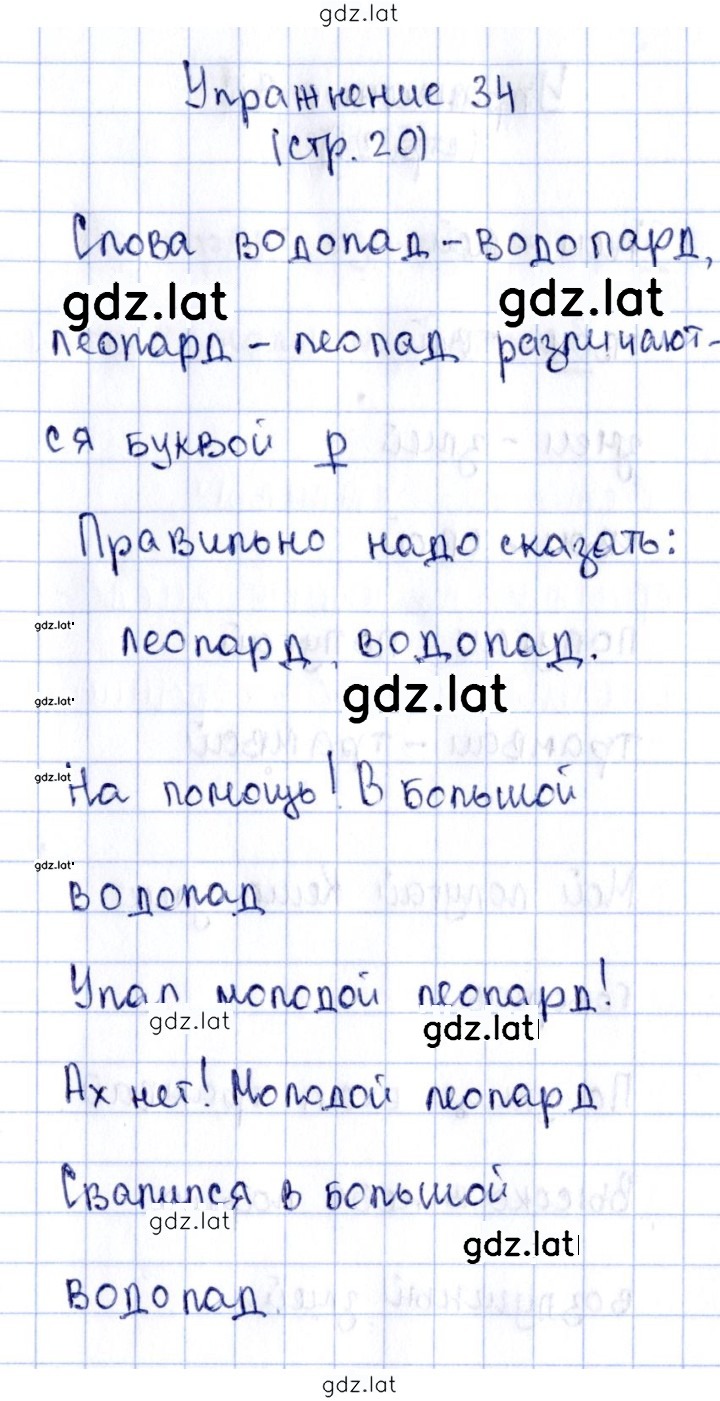 gdz.lat
Упражнение 34
(стр. 20)
Слова водопад-водопард,
gdz.lat gdz.lat
леопард-леопад различают-
ся буквой р
Правильно надо сказать:
gdz.lat
леопард, водопад.
gdz.lat
gdz.lat
gdz.lat
На помощь! В большой
gdz.lat
водопад
Упал молодой леопард!
gdz.lat gdz.lat
Ах нет! Молодой леопард
Свалился в большой
gdz.lat
gdz.lat
водопад.
gdz.lat